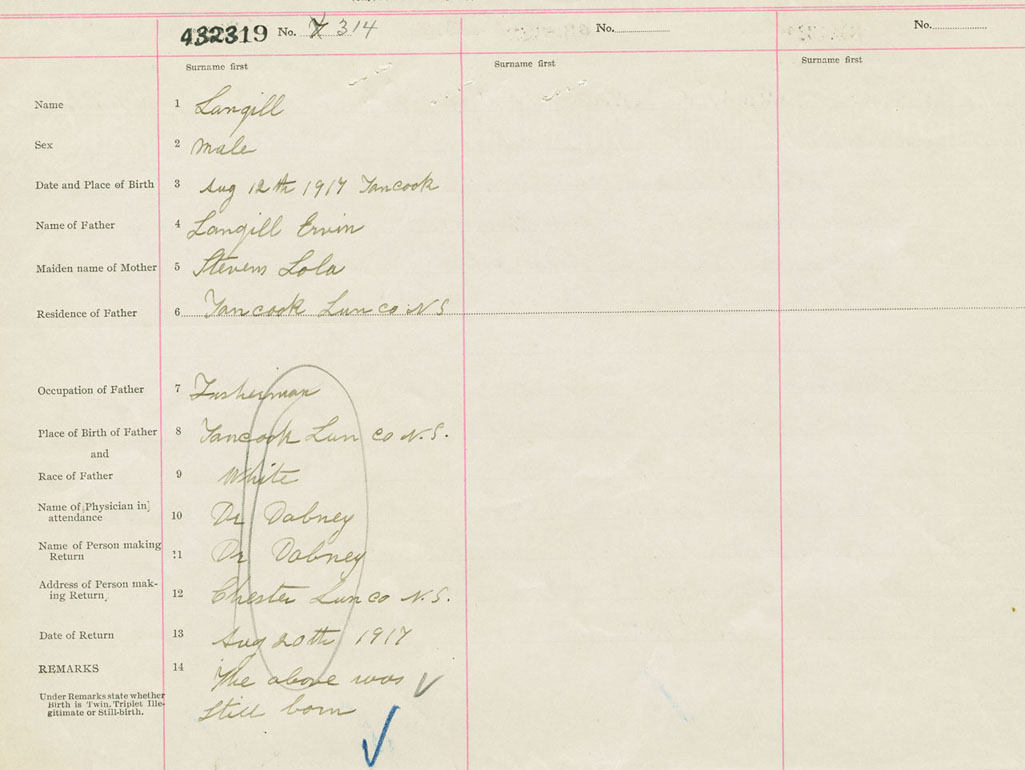 432319 No. 314
No.
No.
Surname first
Surname first
Surname first
Name 1 Langill
Sex 2 male
Date and Place of Birth 3 Aug 12th 1917 Tancook
Name of Father 4 Langill Ervin
Maiden name of Mother 5 Stevens Lola
Residence of Father 6 Tancook Lun co N S
Occupation of Father 7 Fisherman
Place of Birth of Father 8 Tancook Lun co N.S.
and
Race of Father 9 White
Name of Physician in
attendance 10 Dr Dabney
Name of Person making
Return 11 Dr Dabney
Address of Person mak-
ing Return 12 Chester Lun co N.S.
Date of Return 13 Aug 20th 1917
REMARKS 14 The above was
Under Remarks state whether
Birth is Twin, Triplet Ille-
gitimate or Still-birth.
Still born